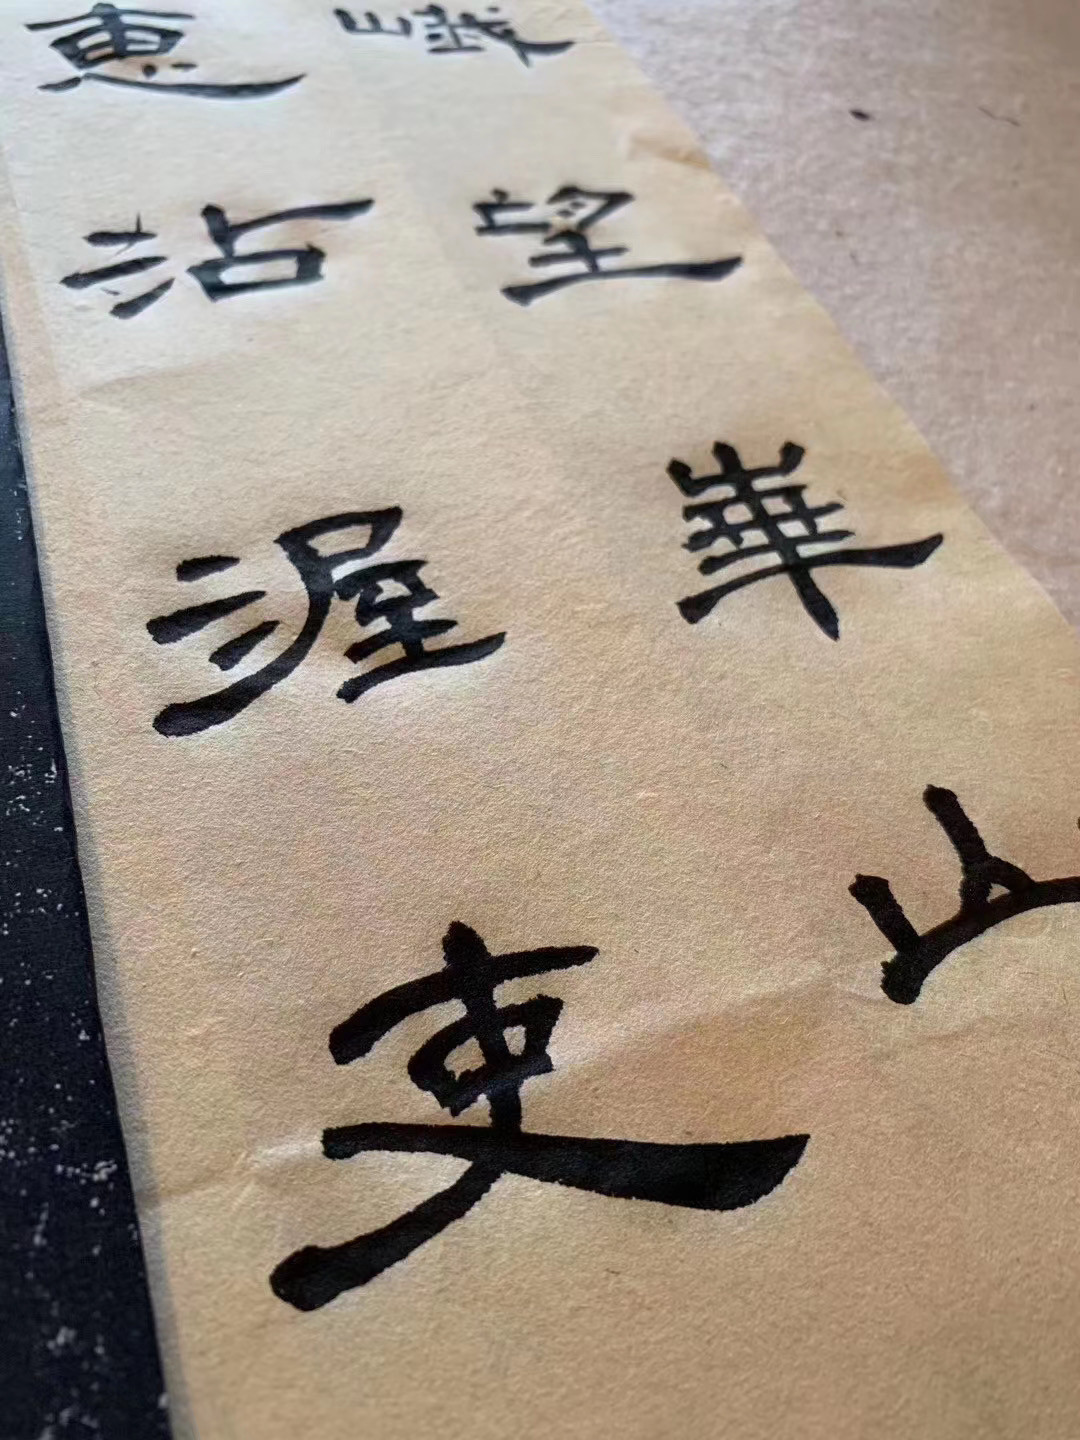 峨望華山
惠沾渥吏